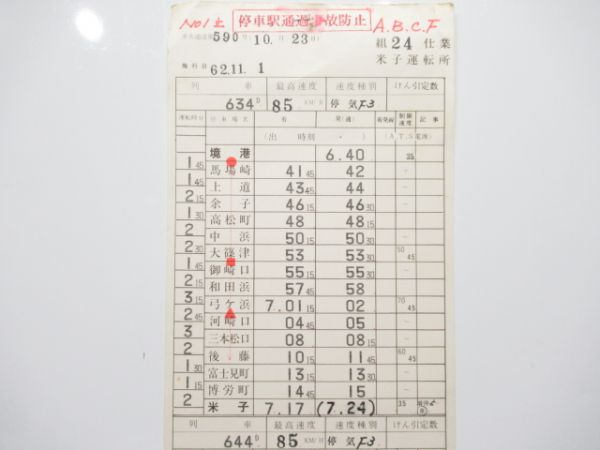 No1 士 停車駅通過事故防止 A.B.C.F
590 10.23
組 24 仕業
米子運転所
施行日 62.11.1
列車 最高速度 速度種別 けん引定数
634D 85 KM/H 停気F3
運転時分 停車場名 着 発(通) 着発線 制限速度 記事
(出 時別 ・ ) (A.T.S電源)
境港 6.40 35
1 45
馬場崎 41 45 42
1
上道 43 45 44
2 15
余子 46 15 46 30
1 45
高松町 48 48 15
2
中浜 50 15 50 30
2 30
大篠津 53 53 30 50 45
1 45
御崎口 55 15 55 30
2 15
和田浜 57 45 58
3 15
弓ケ浜 7.01 15 02 70 45
2 45
河崎口 04 45 05
3
三本松口 08 08 15
2
後藤 10 15 11 45 60 45
1 30
富士見町 13 15 13 30
1 15
博労町 14 45 15
2
米子 7.17 (7.24) 35
列車 最高速度 速度種別 けん引定数
644D 85 KM/H 停気F3